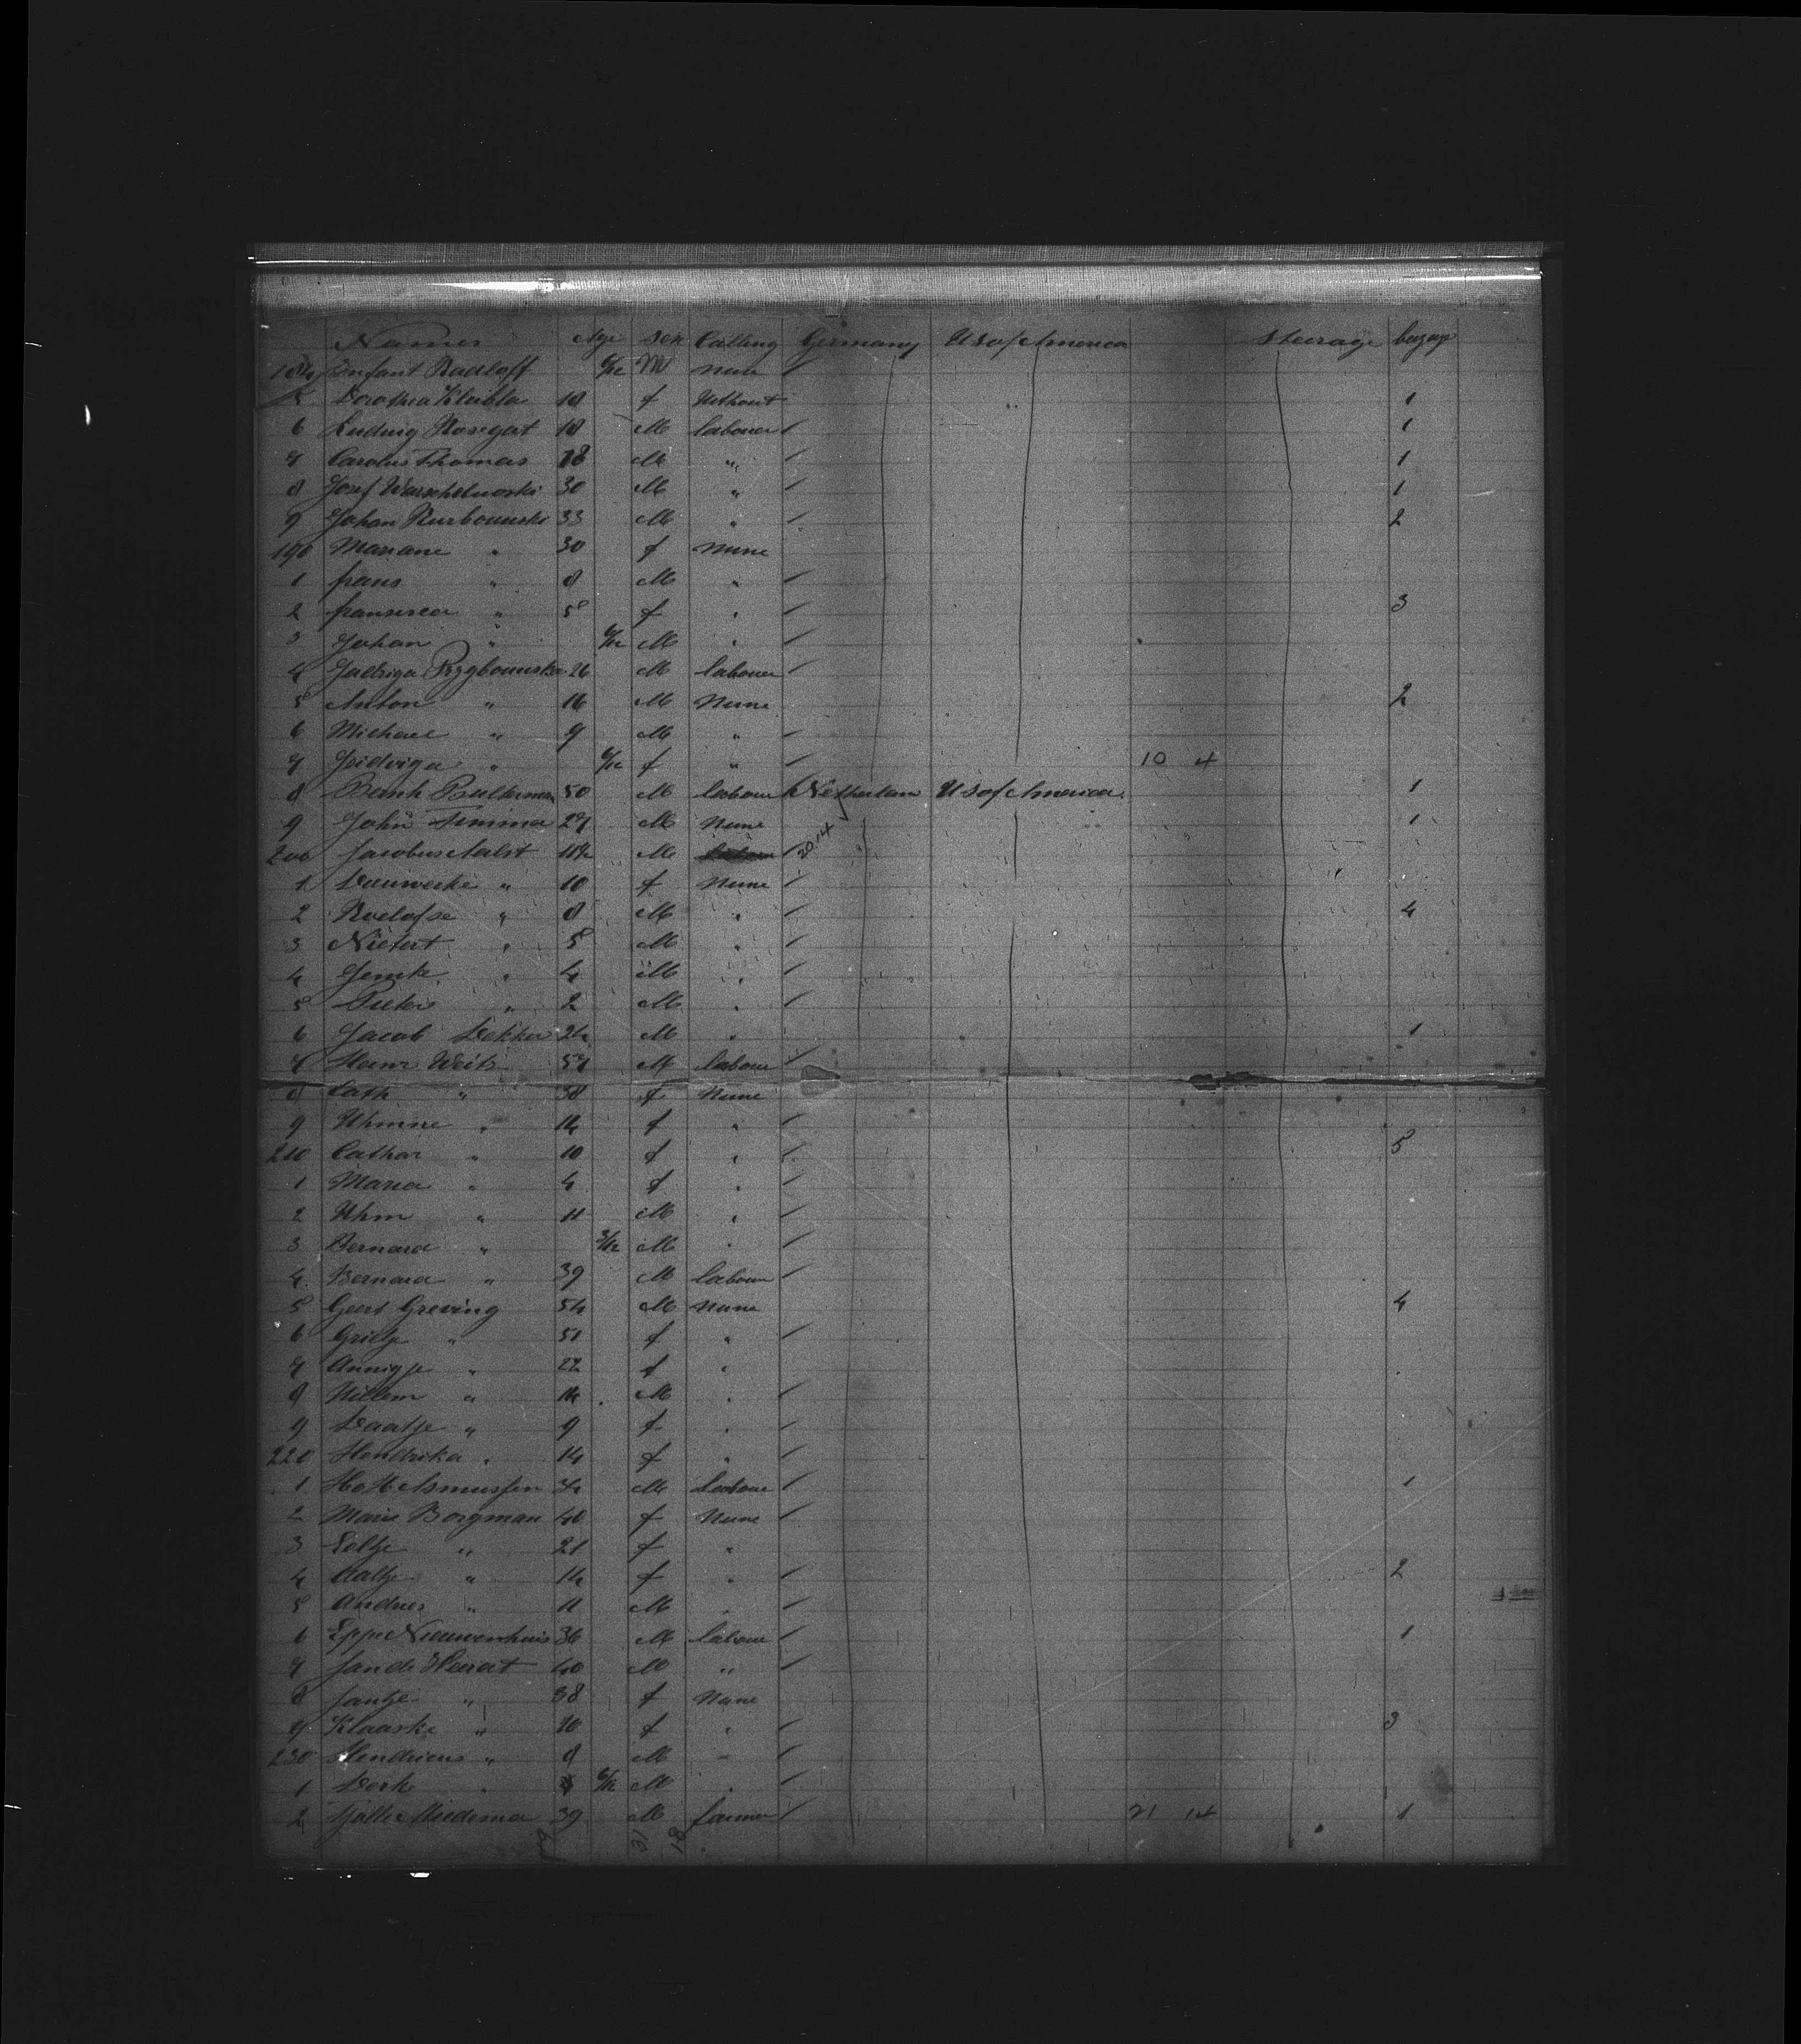 Names Age Sex Calling Germany US of America Steerage bagage
184 Infant Radloff 6/12 M none
5 Dorothea 18 f Without 1
6 Ludwig Rosegart 18 M labourer 1
7 Carolus Thomas 18 M " 1
8 Josef 30 M " 1
9 Johan 33 M " 2
190 Mariane " 30 f None
1 frans " 8 M "
2 " 5 f " 3
3 Johan " 6/12 M "
4 26 M labourer
5 Anton " 16 M None 2
6 Michael " 9 M "
7 " 6/12 f " 10 4
8 Bulterman 50 M labour Netherlan US of America 1
9 John Timmer 27 M None 1
200 Jacobus Aalst 11 M 20 14
1 " 10 f None
2 Roelofse " 8 M " 4
3 " 5 M "
4 " 4 M "
5 Pieter " 2 M "
6 Jacob Dekker 24 M " 1
7 Heinr Weits 57 M labour
8 Cath " 38 f None
9 " 14 f "
210 Cathar " 10 f " 5
1 Maria " 4 f "
2 Whm " 11 M "
3 Bernard " 3/12 M "
4 Bernard " 39 M labour
5 Geert Greving 54 M None 4
6 Grietje " 51 f "
7 Annigje " 22 f "
8 Willem " 14 M "
9 Daatje " 9 f "
220 Hendrika " 14 f "
1 Asmussen M Labour 1
2 Marie Borgman 40 f None
3 " 21 f "
4 Aaltje " 14 f " 2
5 Andries " 11 M "
6 Eppe Nieuwenhuis 36 M labour 1
7 Jan de 40 M "
8 Jantje " 38 f None
9 Klaaske " 10 f " 3
230 Hendricus " 8 M "
1 Derk " 6/12 M "
2 Miedema 39 M farmer 21 14 1